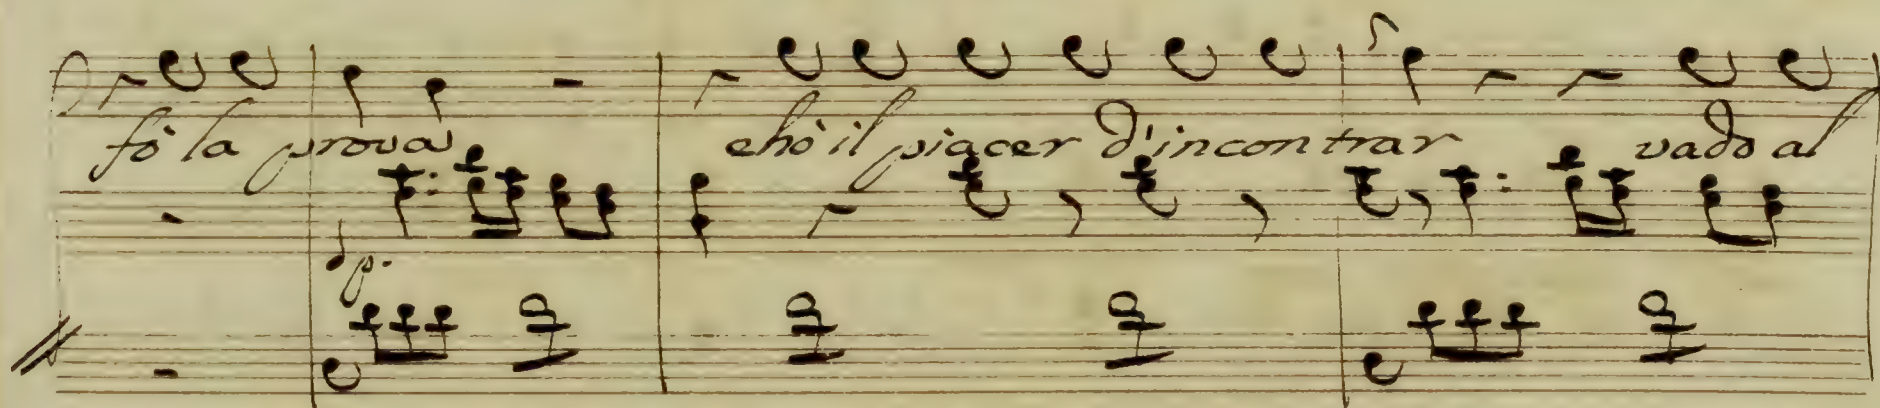 fò la prova ehò il piacer d'incontrar vado al
p.